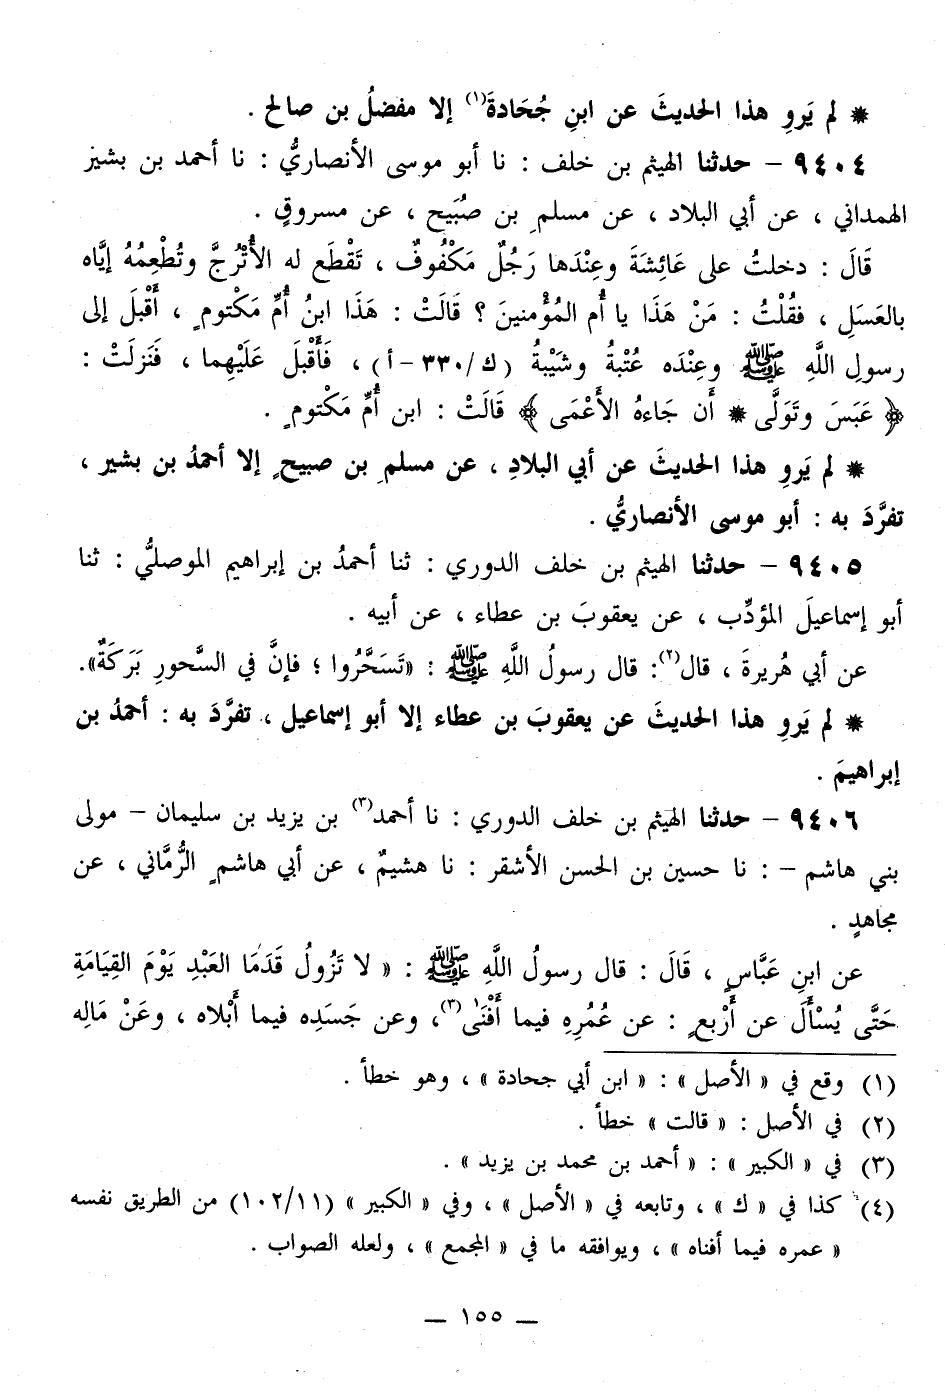 * لم يَروِ هذا الحديثَ عن ابنِ جُحَادةَ(١) إلا مفضلُ بن صالح .
٩٤٠٤ – حدثنا الهيثم بن خلف : نا أبو موسى الأنصاريُّ : نا أحمد بن بشير
الهمداني ، عن أبي البلاد ، عن مسلمِ بن صُبَيح ، عن مسروقٍ .
قَالَ : دخلتُ على عَائِشَةَ وعِنْدَها رَجُلٌ مَكْفُوفٌ ، تَقْطَع له الأُتْرُجَّ وتُطْعِمُهُ إيَّاه
بالعَسَلِ ، فقُلْتُ : مَنْ هَذَا يا أُم المُؤْمنينَ ؟ قَالَتْ : هَذَا ابنُ أُمِّ مَكْتومٍ ، أَقْبَلَ إلى
رسولِ اللَّهِ ﷺ وعِنْدَه عُتْبةُ وشَيْبةُ (ك/٣٣٠-أ) ، فَأَقْبلَ عَلَيْهِما ، فَنَزلَتْ :
﴿ عَبَسَ وتَوَلَّى * أَن جَاءهُ الأَعْمَى ﴾ قَالَتْ : ابن أُمِّ مَكْتومٍ .
* لم يَروِ هذا الحديثَ عن أبي البلادِ ، عن مسلمِ بن صبيحٍ إلا أحمدُ بن بشير ،
تفرَّدَ به : أبو موسى الأنصاريُّ .
٩٤٠٥ – حدثنا الهيثم بن خلف الدوري : ثنا أحمدُ بن إبراهيم الموصليُّ : ثنا
أبو إسماعيلَ المؤدِّب ، عن يعقوبَ بن عطاء ، عن أبيه .
عن أبي هُريرةَ ، قال(٢): قال رسولُ اللَّهِ ﷺ : «تَسَحَّرُوا ؛ فإنَّ في السَّحورِ بَرَكَةٌ».
* لم يَروِ هذا الحديثَ عن يعقوبَ بن عطاء إلا أبو إسماعيل ، تفرَّدَ به : أحمدُ بن
إبراهيمَ .
٩٤٠٦ – حدثنا الهيثم بن خلف الدوري : نا أحمد(٣) بن يزيد بن سليمان – مولى
بني هاشم – : نا حسين بن الحسن الأشقر : نا هشيمٌ ، عن أبي هاشمٍ الرُّمَّاني ، عن
مجاهدٍ .
عن ابنِ عَبَّاسٍ ، قَالَ : قال رسولُ اللَّهِ ﷺ : « لا تَزُولُ قَدَمَا العَبْدِ يَوْمَ القِيَامَةِ
حَتَّى يُسْأَلَ عن أَرْبعٍ : عن عُمُرِهِ فيما أَفْنَىٰ(٣)، وعن جَسَدِه فيما أَبْلاه ، وعَنْ مَالِه
(١) وقع في « الأصل » : « ابن أبي جحادة » ، وهو خطأ .
(٢) في الأصل : « قالت » خطأ .
(٣) في « الكبير » : « أحمد بن محمد بن يزيد » .
(٤) كذا في « ك » ، وتابعه في « الأصل » ، وفي « الكبير » (١٠٢/١١) من الطريق نفسه
« عمره فيما أفناه » ، ويوافقه ما في « المجمع » ، ولعله الصواب .
— ١٥٥ —